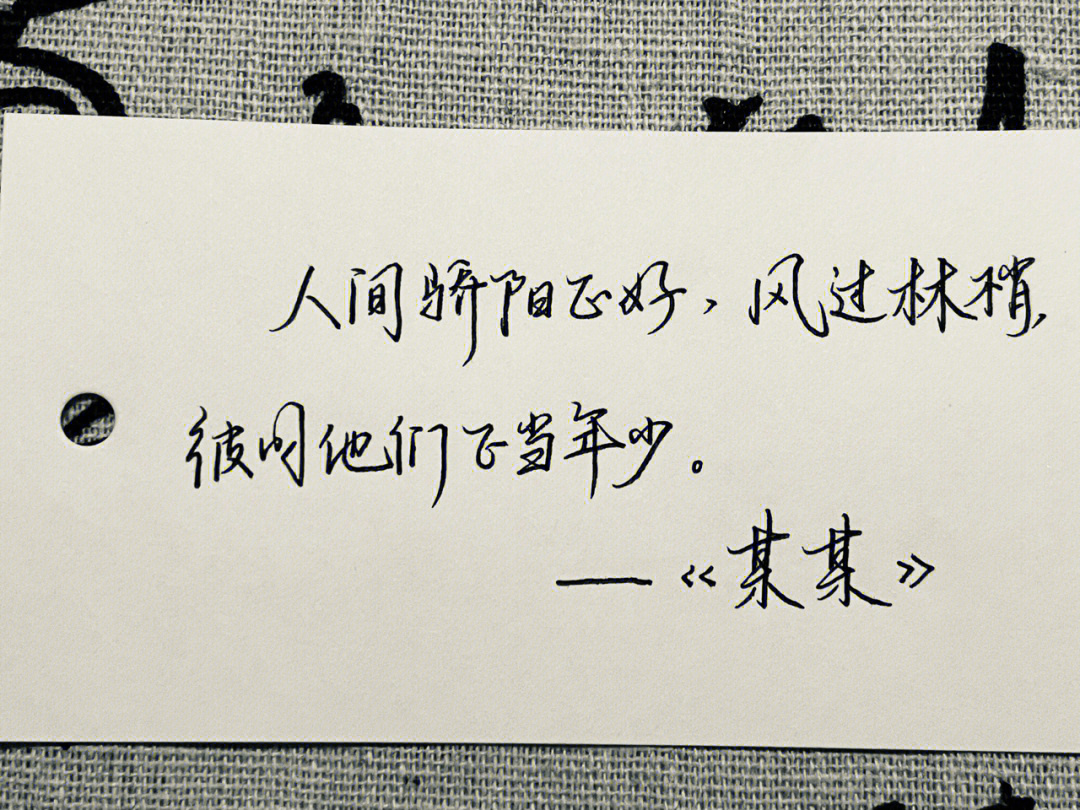 人间骄阳正好，风过林梢，
彼时他们正当年少。
——《某某》